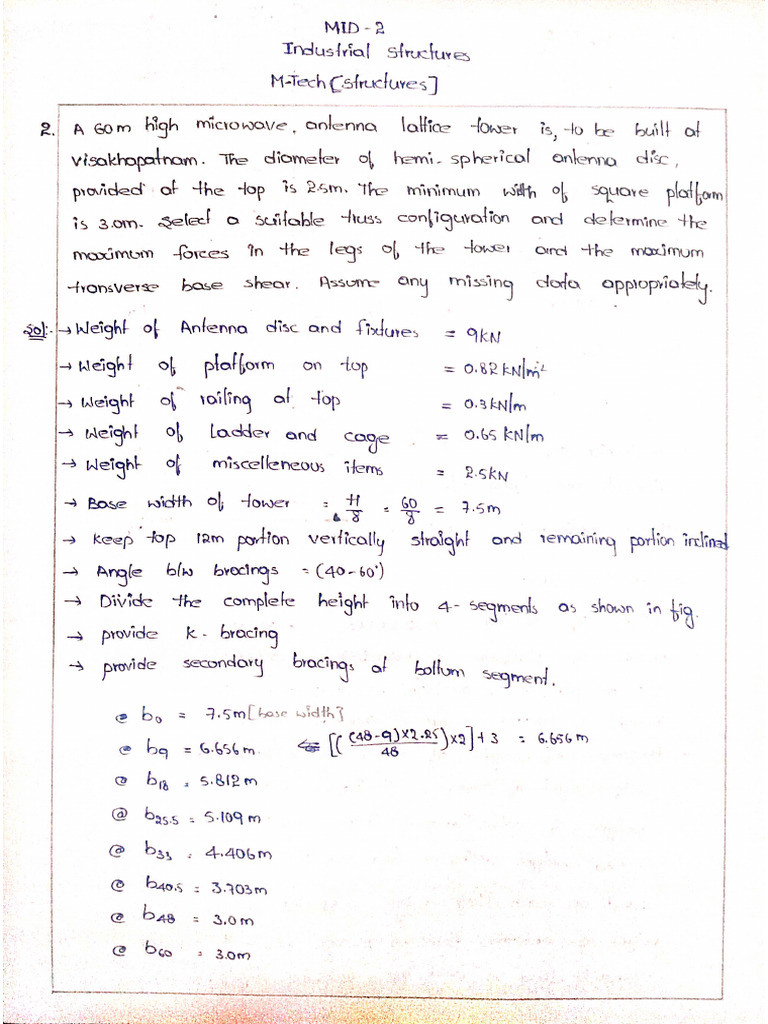 MID - 2
Industrial structures
M-Tech [structures]
2. A 60m high microwave, antenna lattice tower is, to be built at
visakhapatnam. The diameter of hemi-spherical antenna disc,
provided at the top is 2.5m. The minimum width of square platform
is 3.0m. Select a suitable truss configuration and determine the
maximum forces in the legs of the tower and the maximum
transverse base shear. Assume any missing data appropriately.
Sol:- → Weight of Antenna disc and fixtures = 9KN
→ Weight of platform on top = 0.82 KN/m²
→ Weight of railing at top = 0.3KN/m
→ Weight of Ladder and cage = 0.65 KN/m
→ Weight of miscelleneous items = 2.5KN
→ Base width of tower = H/8 = 60/8 = 7.5m
→ Keep top 12m portion vertically straight and remaining portion inclined
→ Angle b/w bracings = (40-60°)
→ Divide the complete height into 4-segments as shown in fig.
→ provide k-bracing
→ provide secondary bracings at bottum segment.
@ b₀ = 7.5m [base width]
@ b₉ = 6.656m ⇐ [((48-9)×2.25/48)×2]+3 = 6.656m
@ b₁₈ = 5.812m
@ b₂₅.₅ = 5.109m
@ b₃₃ = 4.406m
@ b₄₀.₅ = 3.703m
@ b₄₈ = 3.0m
@ b₆₀ = 3.0m